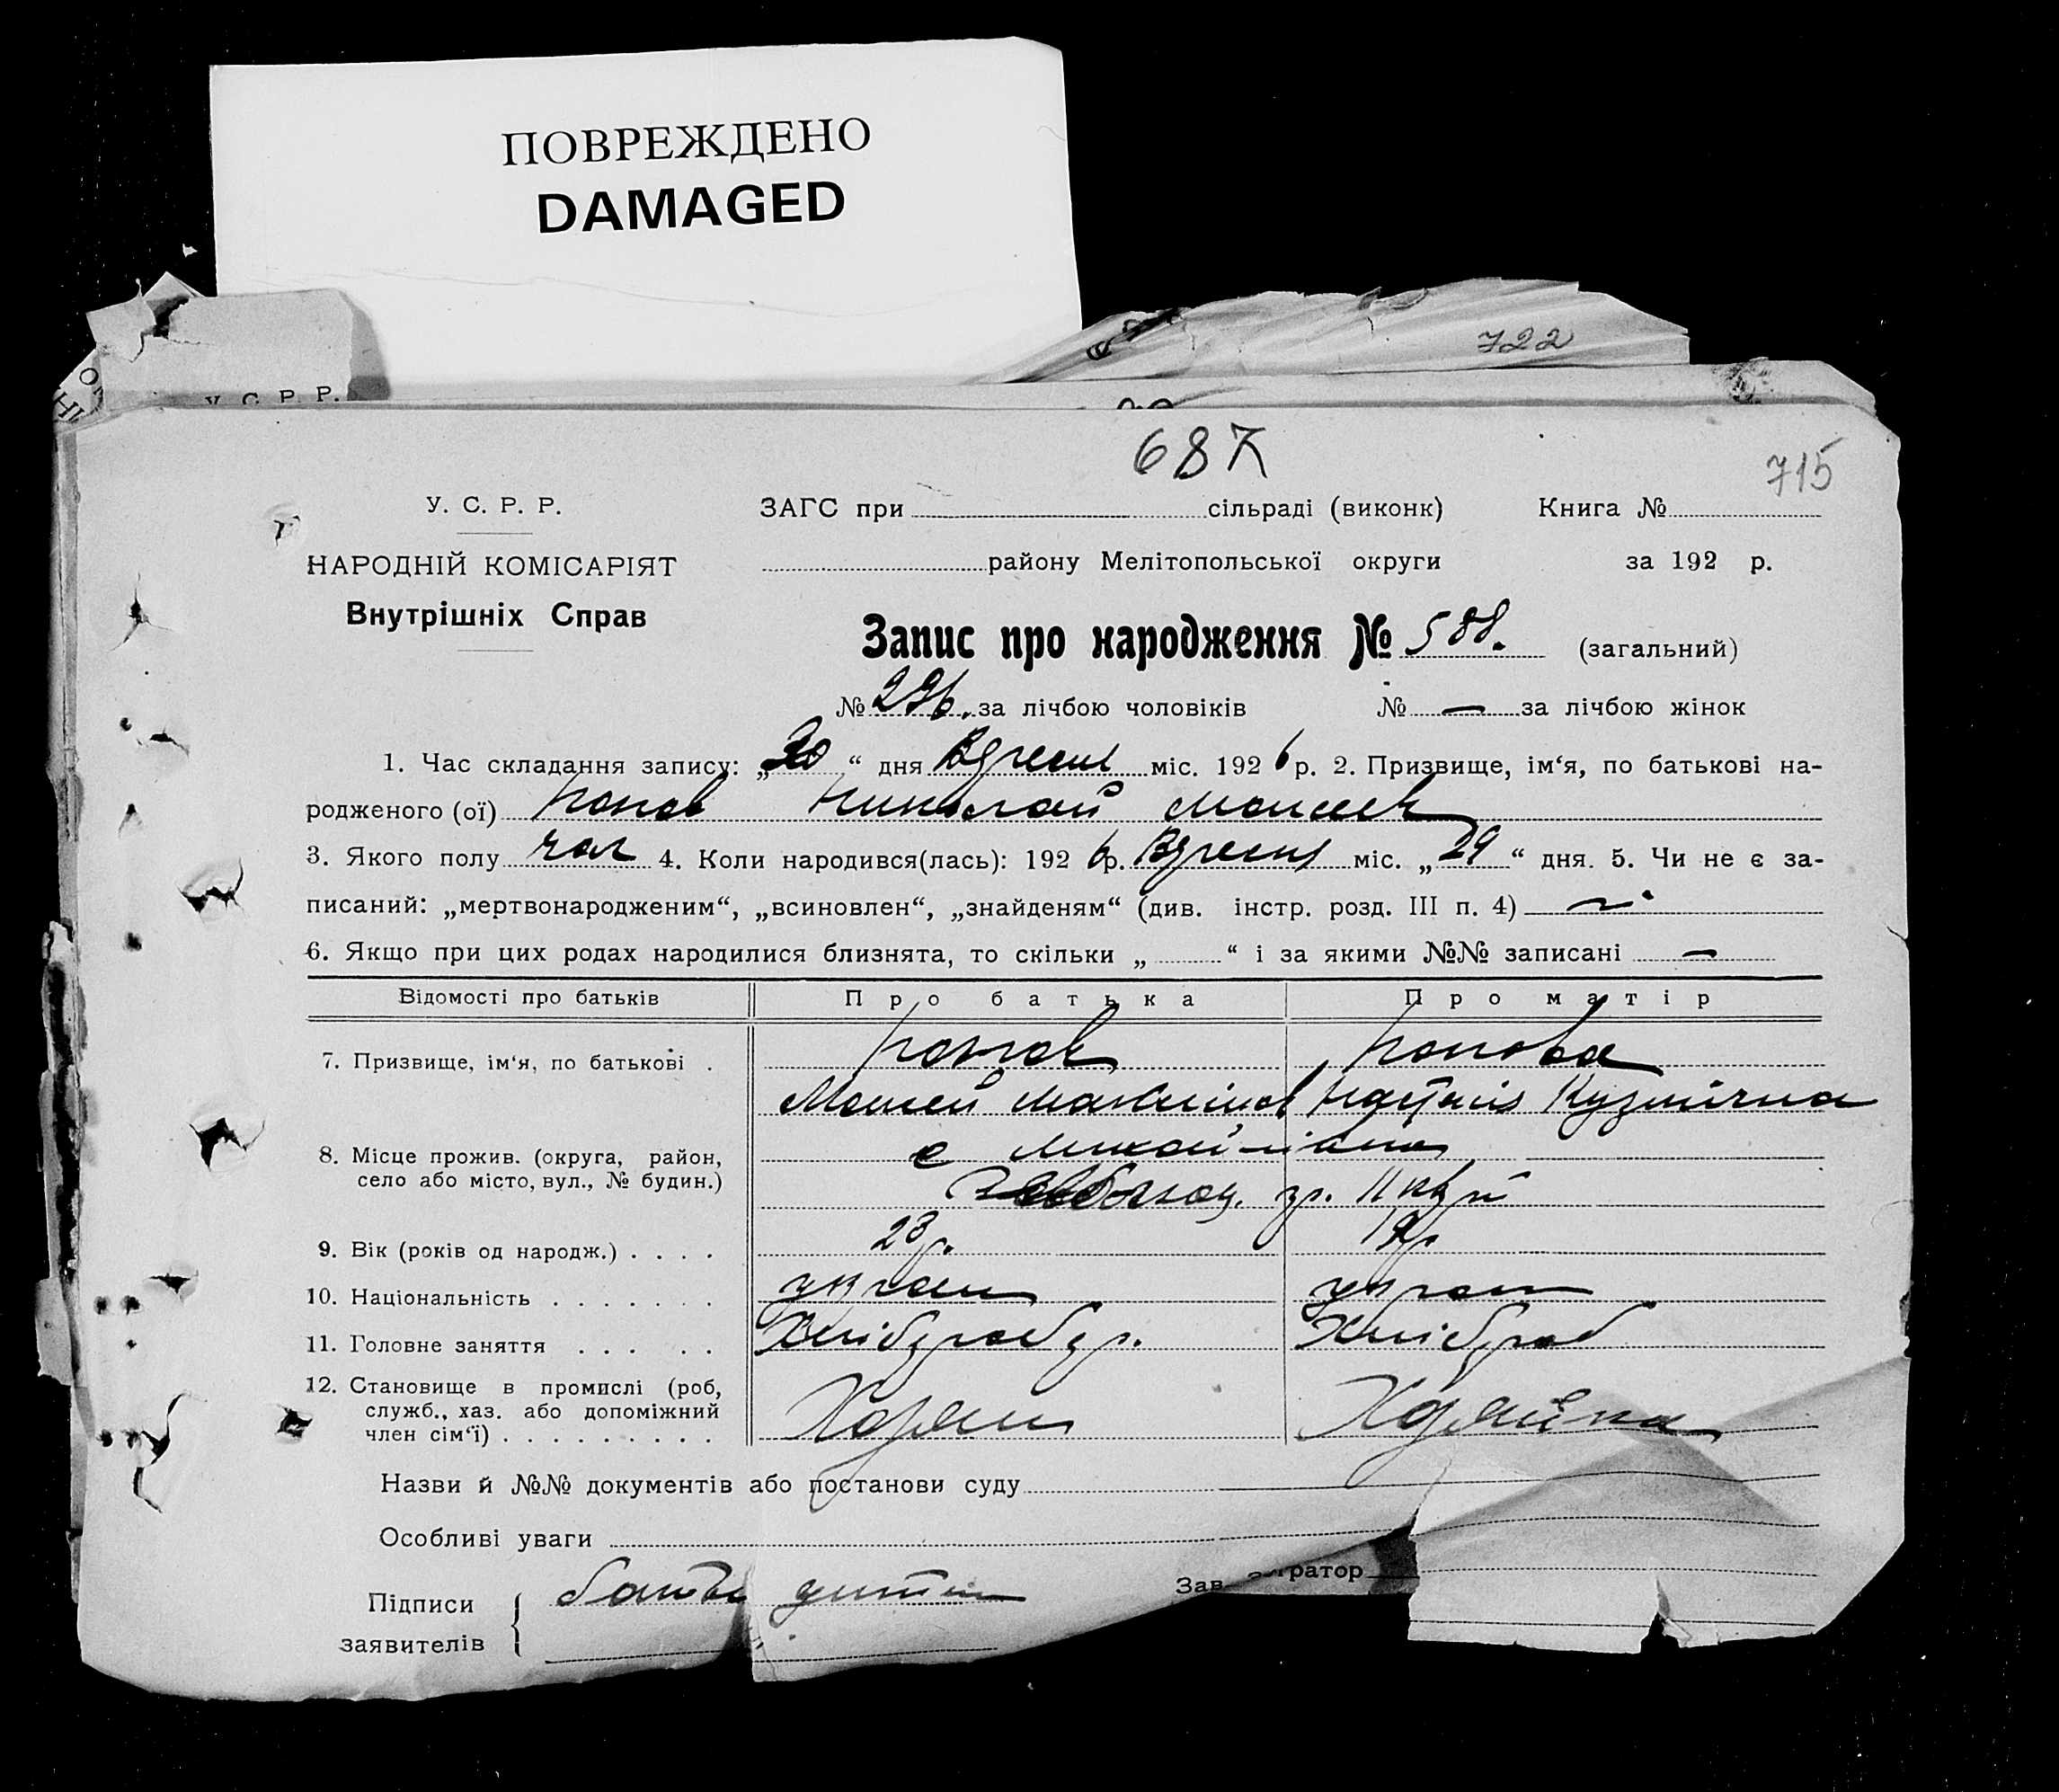 ПОВРЕЖДЕНО
DAMAGED
722
У. С. Р. Р.
687
715
У. С. Р. Р. ЗАГС при сільраді (виконк) Книга №
НАРОДНІЙ КОМІСАРІЯТ району Мелітопольської округи за 192 р.
Внутрішніх Справ
Запис про народження № 588. (загальний)
№ 296. за лічбою чоловіків № — за лічбою жінок
1. Час складання запису: „30“ дня Вресня міс. 1926 р. 2. Призвище, ім‘я, по батькові на-
родженого (ої) Попов Николай Моисеев
3. Якого полу чол 4. Коли народився(лась): 1926 р. Вресня міс. „29“ дня. 5. Чи не є за-
писаний: „мертвонародженим“, „всиновлен“, „знайденям“ (див. інстр. розд. III п. 4)
6. Якщо при цих родах народилися близнята, то скільки „ “ і за якими №№ записані —
Відомості про батьків Про батька Про матір
7. Призвище, ім‘я, по батькові . Попов Попова
Моисей Кузмічна
8. Місце прожив. (округа, район, с
село або місто, вул., № будин.)
9. Вік (років од народж.) . . . . 23 р. 19 р.
10. Національність . . . . . . . украин украин
11. Головне заняття . . . . . Хлібороб Хлібороб
12. Становище в промислі (роб, Хозяин Хозяйка
служб., хаз. або допоміжний
член сім‘ї) . . . . . . . . .
Назви й №№ документів або постанови суду
Особливі уваги
Підписи батько Зав. ратор
заявителів